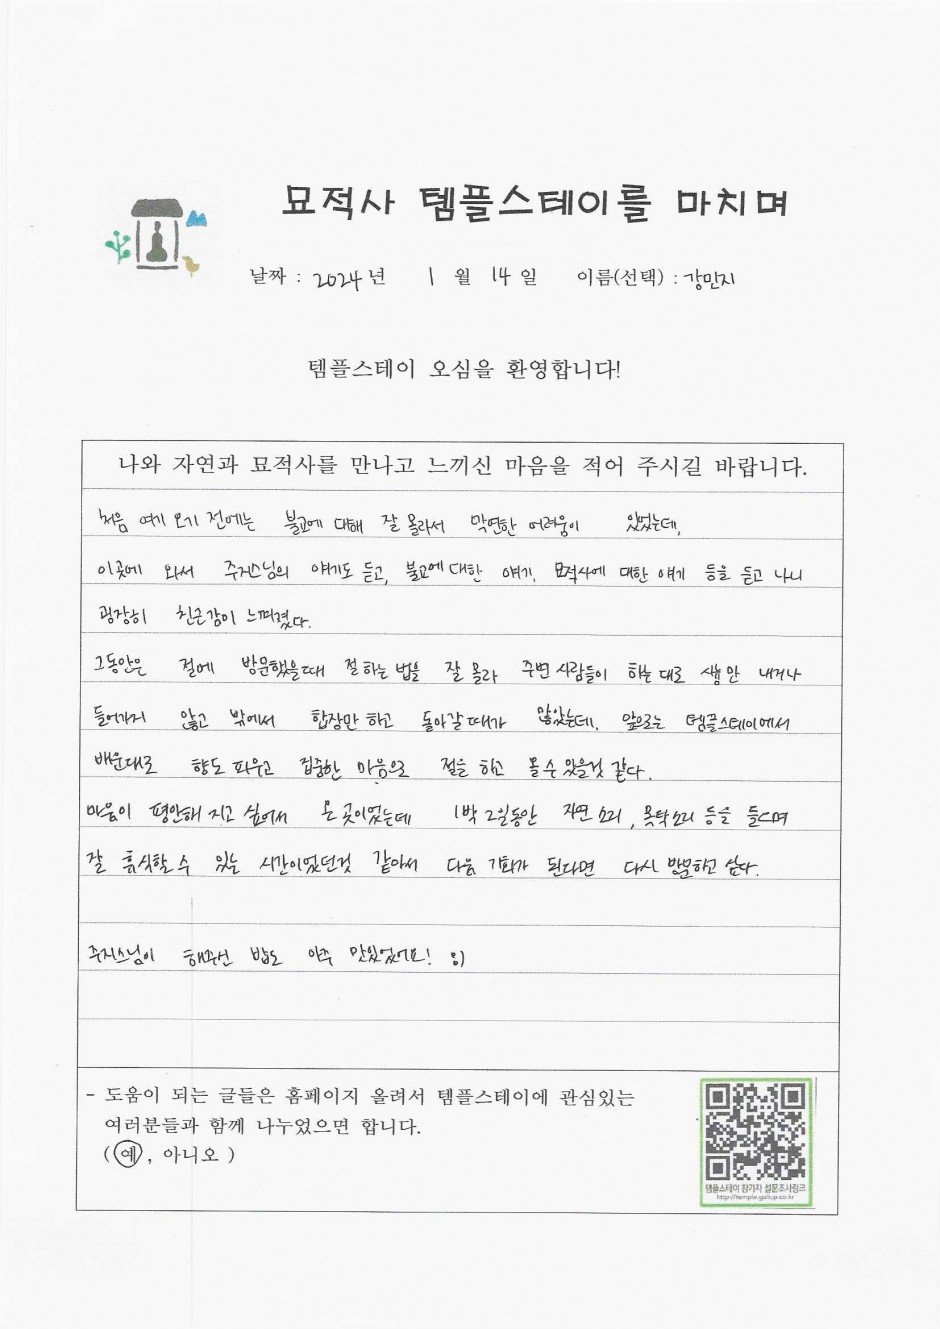 묘적사 템플스테이를 마치며
날짜 : 2024년 1 월 14 일 이름(선택) : 강민지
템플스테이 오심을 환영합니다!
나와 자연과 묘적사를 만나고 느끼신 마음을 적어 주시길 바랍니다.
처음 여기 오기 전에는 불교에 대해 잘 몰라서 막연한 어려움이 있었는데,
이곳에 와서 주지스님의 얘기도 듣고, 불교에 대한 얘기, 묘적사에 대한 얘기 등을 듣고 나니
굉장히 친근감이 느껴졌다.
그동안은 절에 방문했을때 절하는 법을 잘 몰라 주변 사람들이 하는 대로 시늉만 내거나
들어가지 않고 밖에서 합장만 하고 돌아갈 때가 많았는데, 앞으로는 템플스테이에서
배운대로 향도 피우고 집중한 마음으로 절을 하고 올 수 있을것 같다.
마음이 평안해 지고 싶어서 온 곳이었는데 1박 2일동안 자연 소리, 목탁소리 등을 들으며
잘 휴식할 수 있는 시간이었던것 같아서 다음 기회가 된다면 다시 방문하고 싶다.
주지스님이 해주신 밥도 아주 맛있었어요! :)
- 도움이 되는 글들은 홈페이지 올려서 템플스테이에 관심있는
여러분들과 함께 나누었으면 합니다.
( 예 , 아니오 )
템플스테이 참가자 설문조사링크
http://temple.gallup.co.kr